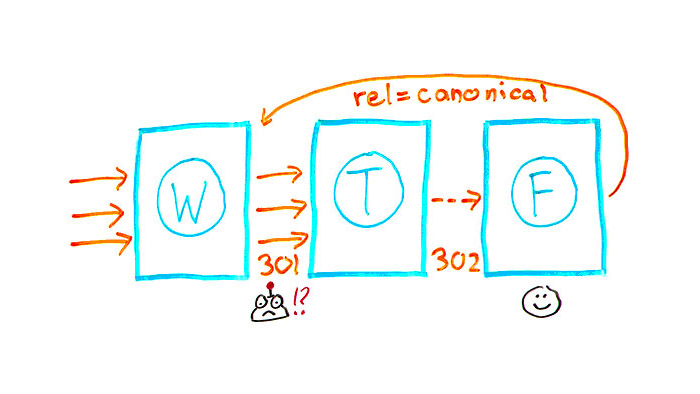 rel=canonical
W
T
F
301
302
!?